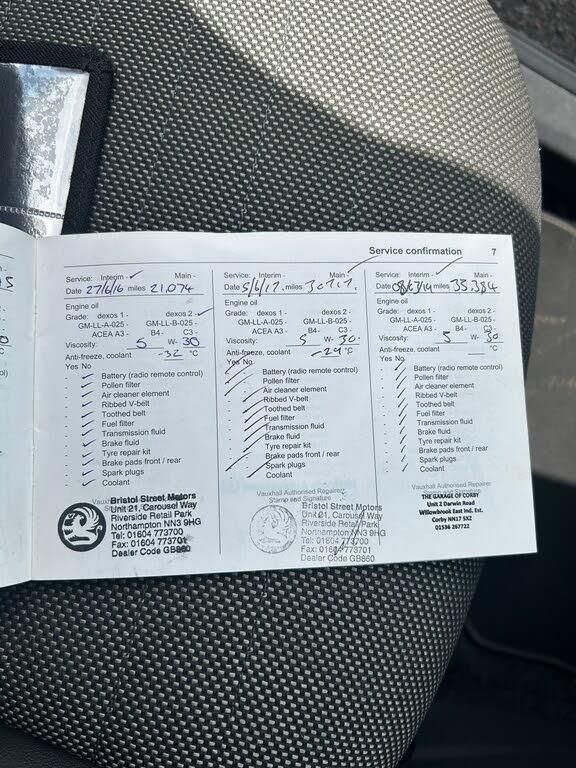 Service confirmation 7
Service: Interim - ✓ Main -
Date 27/6/16 miles 21,074
Engine oil
Grade: dexos 1 - dexos 2 - ✓
GM-LL-A-025 - GM-LL-B-025 -
ACEA A3 - B4- C3 -
Viscosity: 5 W- 30
Anti-freeze, coolant -32 °C
Yes No
Battery (radio remote control)
Pollen filter
Air cleaner element
Ribbed V-belt
Toothed belt
Fuel filter
Transmission fluid
Brake fluid
Tyre repair kit
Brake pads front / rear
Spark plugs
Coolant
Bristol Street Motors
Unit 21, Carousel Way
Riverside Retail Park
Northampton NN3 9HG
Tel: 01604 773700
Fax: 01604 773701
Dealer Code GB860
Service: Interim - Main -
Date 5/6/17. miles
Engine oil
Grade: dexos 1 - dexos 2 -
GM-LL-A-025 - GM-LL-B-025 -
ACEA A3 - B4- C3 -
Viscosity: 5 W- 30.
Anti-freeze, coolant -29 °C
Yes No
Battery (radio remote control)
Pollen filter
Air cleaner element
Ribbed V-belt
Toothed belt
Fuel filter
Transmission fluid
Brake fluid
Tyre repair kit
Brake pads front / rear
Spark plugs
Coolant
Vauxhall Authorised Repairer
Stamp and Signature
Bristol Street Motors
Unit 21, Carousel Way
Riverside Retail Park
Northampton NN3 9HG
Tel: 01604 773700
Fax: 01604 773701
Dealer Code GB860
Service: Interim - ✓ Main -
Date miles 35,384
Engine oil
Grade: dexos 1 - dexos 2 -
GM-LL-A-025 - GM-LL-B-025 -
ACEA A3 - B4- C3 -
Viscosity: 5 W- 30
Anti-freeze, coolant °C
Yes No
Battery (radio remote control)
Pollen filter
Air cleaner element
Ribbed V-belt
Toothed belt
Fuel filter
Transmission fluid
Brake fluid
Tyre repair kit
Brake pads front / rear
Spark plugs
Coolant
Vauxhall Authorised Repairer
THE GARAGE OF CORBY
Unit 2 Darwin Road
Willowbrook East Ind. Est.
Corby NN17 5XZ
01536 267722